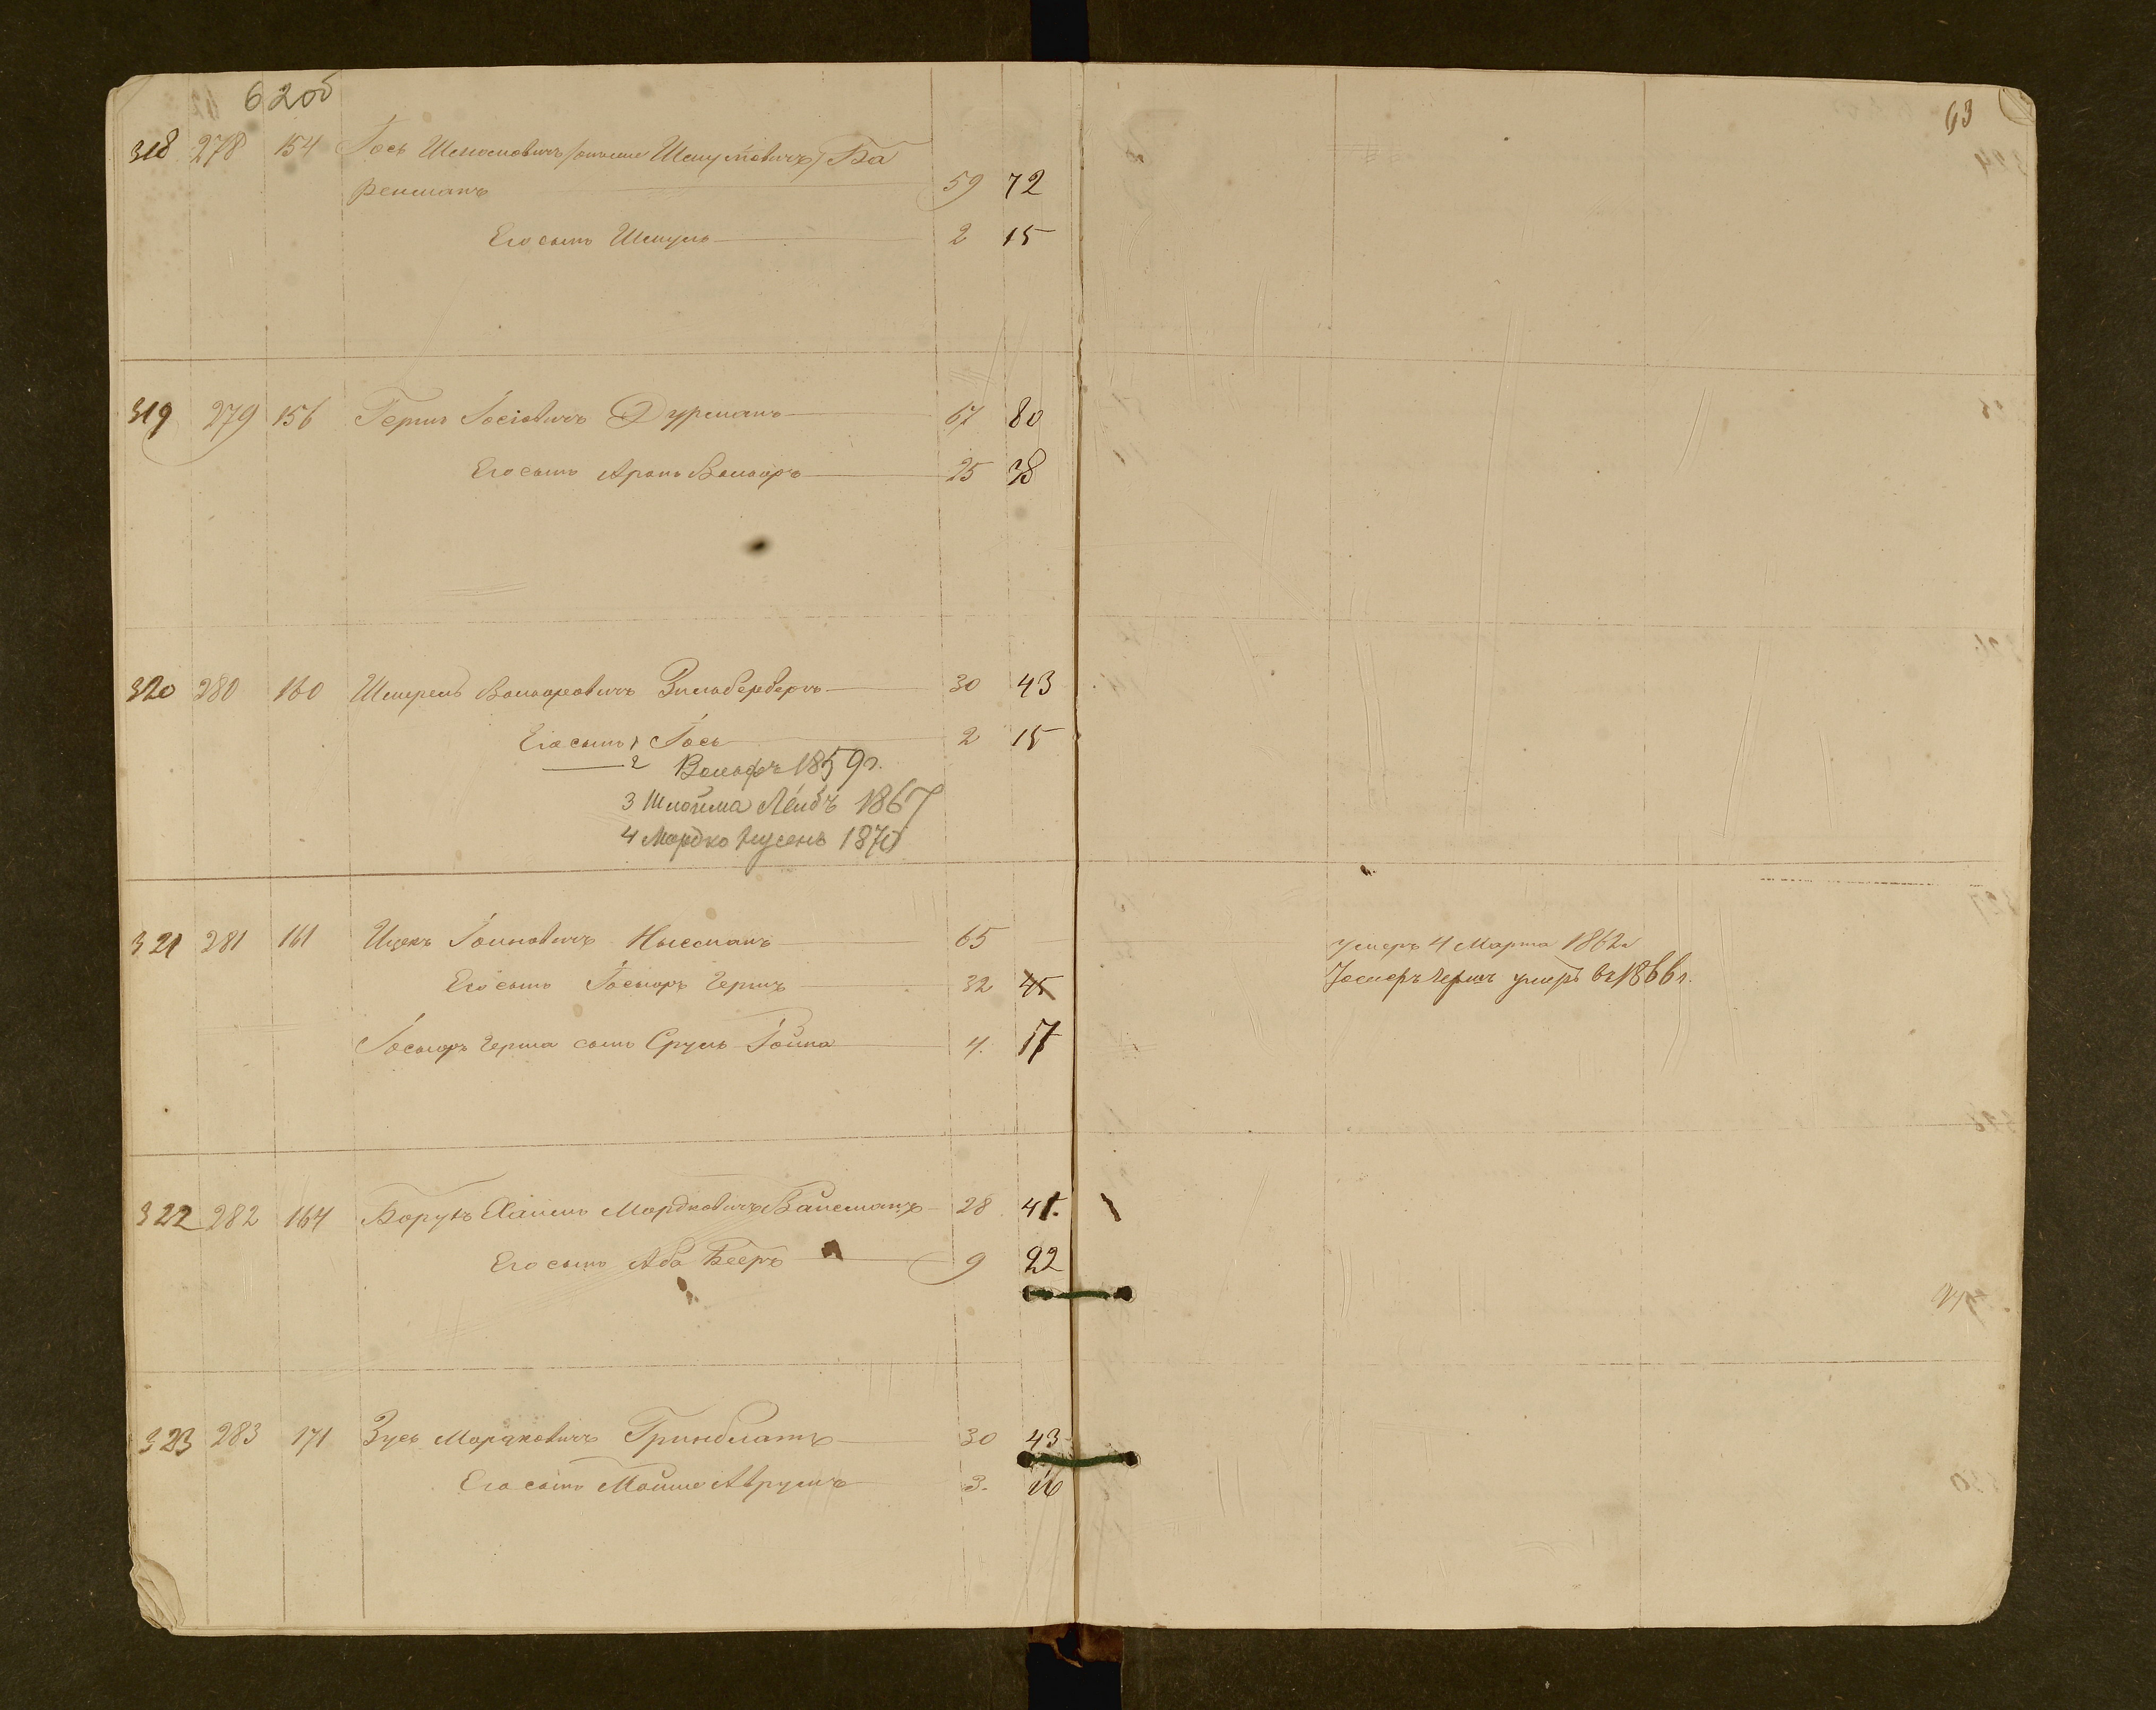 62об
318 278 154 Іось Шлиомовичъ /онъже Шмулiовичъ/ Ба
ренманъ 59 72
Его сынъ Шмуль 2 15
319 279 156 Гершъ Іосіовичъ Дурманъ 67 80
Его сынъ Аронъ Вольфъ 25 38
320 280 160 Шмерель Вольфовичъ Зильберберъ 30 43
Его сынъ 1 Іось 2 15
2 Вольфъ 1859 г.
3 Шлойма Лейбъ 1867
4 Мордко Нусенъ 1870
321 281 161 Ицекъ Іойновичъ Нысманъ 65
Его сынъ Іосыфъ Гершъ 32 45
Іосыфъ Герша сынъ Сруль Іойна 4. 17
322 282 164 Борухъ Хаимъ Мордковичъ Вайсманъ 28 41.
Его сынъ Аба Бееръ 9 22
323 283 171 Зусь Мордковичъ Гринблатъ 30 43
Его сынъ Мойше Аврумъ 3. 16
63
умеръ 4 Марта 1862 г
Іосифъ Гершъ умеръ въ 1866 г.